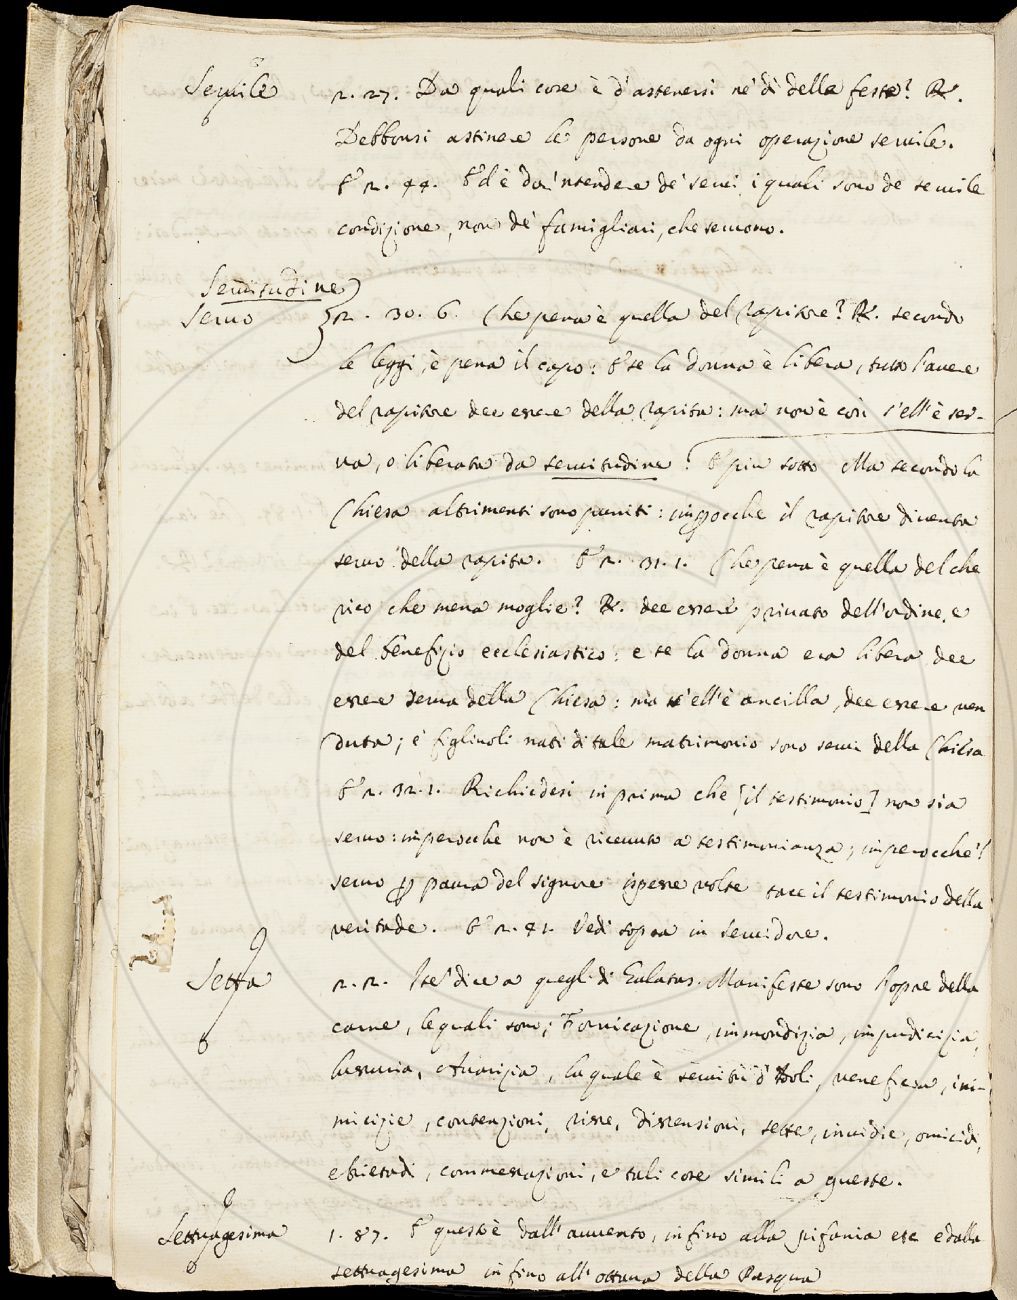 Seruile 2. 27. Da quali cose è d'astenersi ne' dì delle feste? R.
Debbonsi astinere le persone da ogni operazione seruile.
E 2. 44. E d'è da 'ntendere de' serui, i quali sono de seruile
condizione, non de' famigliari, che seruono.
Seruitudine
Seruo 2. 30. 6. Che pena è quella del rapitore? R. secondo
le leggi, è pena il capo: E se la donna è libera, tutto l'auere
del rapitore dee essere della rapita: ma non è così s'ell'è ser-
ua, o liberata da seruitudine? E più sotto Ma secondo la
Chiesa altrimenti sono puniti: imperocche il rapitore diuenta
seruo della rapita. E 2. 31. 1. Che pena è quella del che
rico che mena moglie? R. dee essere priuato dell'ordine, e
del benefizio ecclesiastico: e se la donna era libera dee
essere serua della Chiesa: ma s'ell'è ancilla, dee essere uen
duta; e figliuoli nati di tale matrimonio sono serui della Chiesa
E 2. 32. 1. Richiedesi in prima che [il testimonio] non sia
seruo: imperocche non è riceuuto a testimonianza; imperocche 'l
seruo p paura del signore ispesse volte tace il testimonio della
veritade. E 2. 41. Vedi sopra in Seruidore.
Setta 2. 2. dice a quegli di Galatas. Manifeste sono l'opre della
carne, le quali sono; Fornicazione, immondizia, impudicizia,
lussuria, Auarizia, la quale è seruitù d'Idoli, veneficia, ini-
micizie, contenzioni, risse, dissensioni, sette, inuidie, omicidi,
ebrietadi, commessazioni, e tali cose simili a queste.
Settuagesima 1. 87. E questo è dall'auuento, infino alla pifania ese e dalla
settuagesima infino all'ottaua della Pasqua